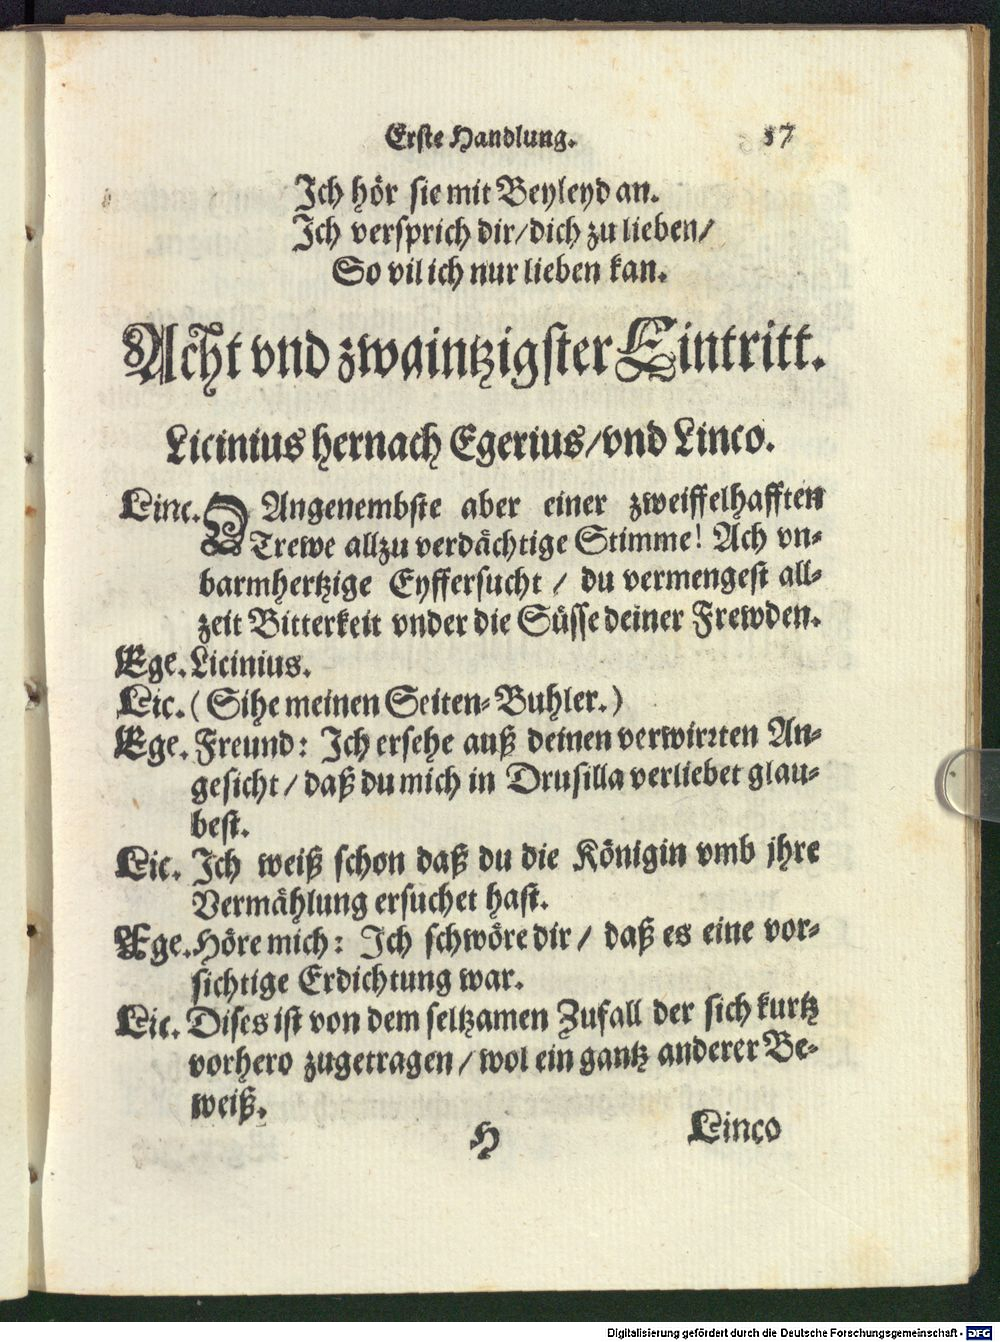 Erste Handlung. 57
Ich hör sie mit Beyleyd an.
Ich versprich dir/ dich zu lieben/
So vil ich nur lieben kan.
Acht vnd zwaintzigster Eintritt.
Licinius hernach Egerius/ vnd Linco.
Linc. O Angenembste aber einer zweiffelhafften
Trewe allzu verdächtige Stimme! Ach vn=
barmhertzige Eyffersucht / du vermengest all=
zeit Bitterkeit vnder die Süsse deiner Frewden.
Ege. Licinius.
Lic. (Sihe meinen Seiten=Buhler.)
Ege. Freund: Ich ersehe auß deinen verwirrten An=
gesicht / daß du mich in Drusilla verliebet glau=
best.
Lic. Ich weiß schon daß du die Königin vmb jhre
Vermählung ersuchet hast.
Ege. Höre mich: Ich schwöre dir / daß es eine vor=
sichtige Erdichtung war.
Lic. Dises ist von dem seltzamen Zufall der sich kurtz
vorhero zugetragen / wol ein gantz anderer Be=
weiß.
H Linco
Digitalisierung gefördert durch die Deutsche Forschungsgemeinschaft - DFG